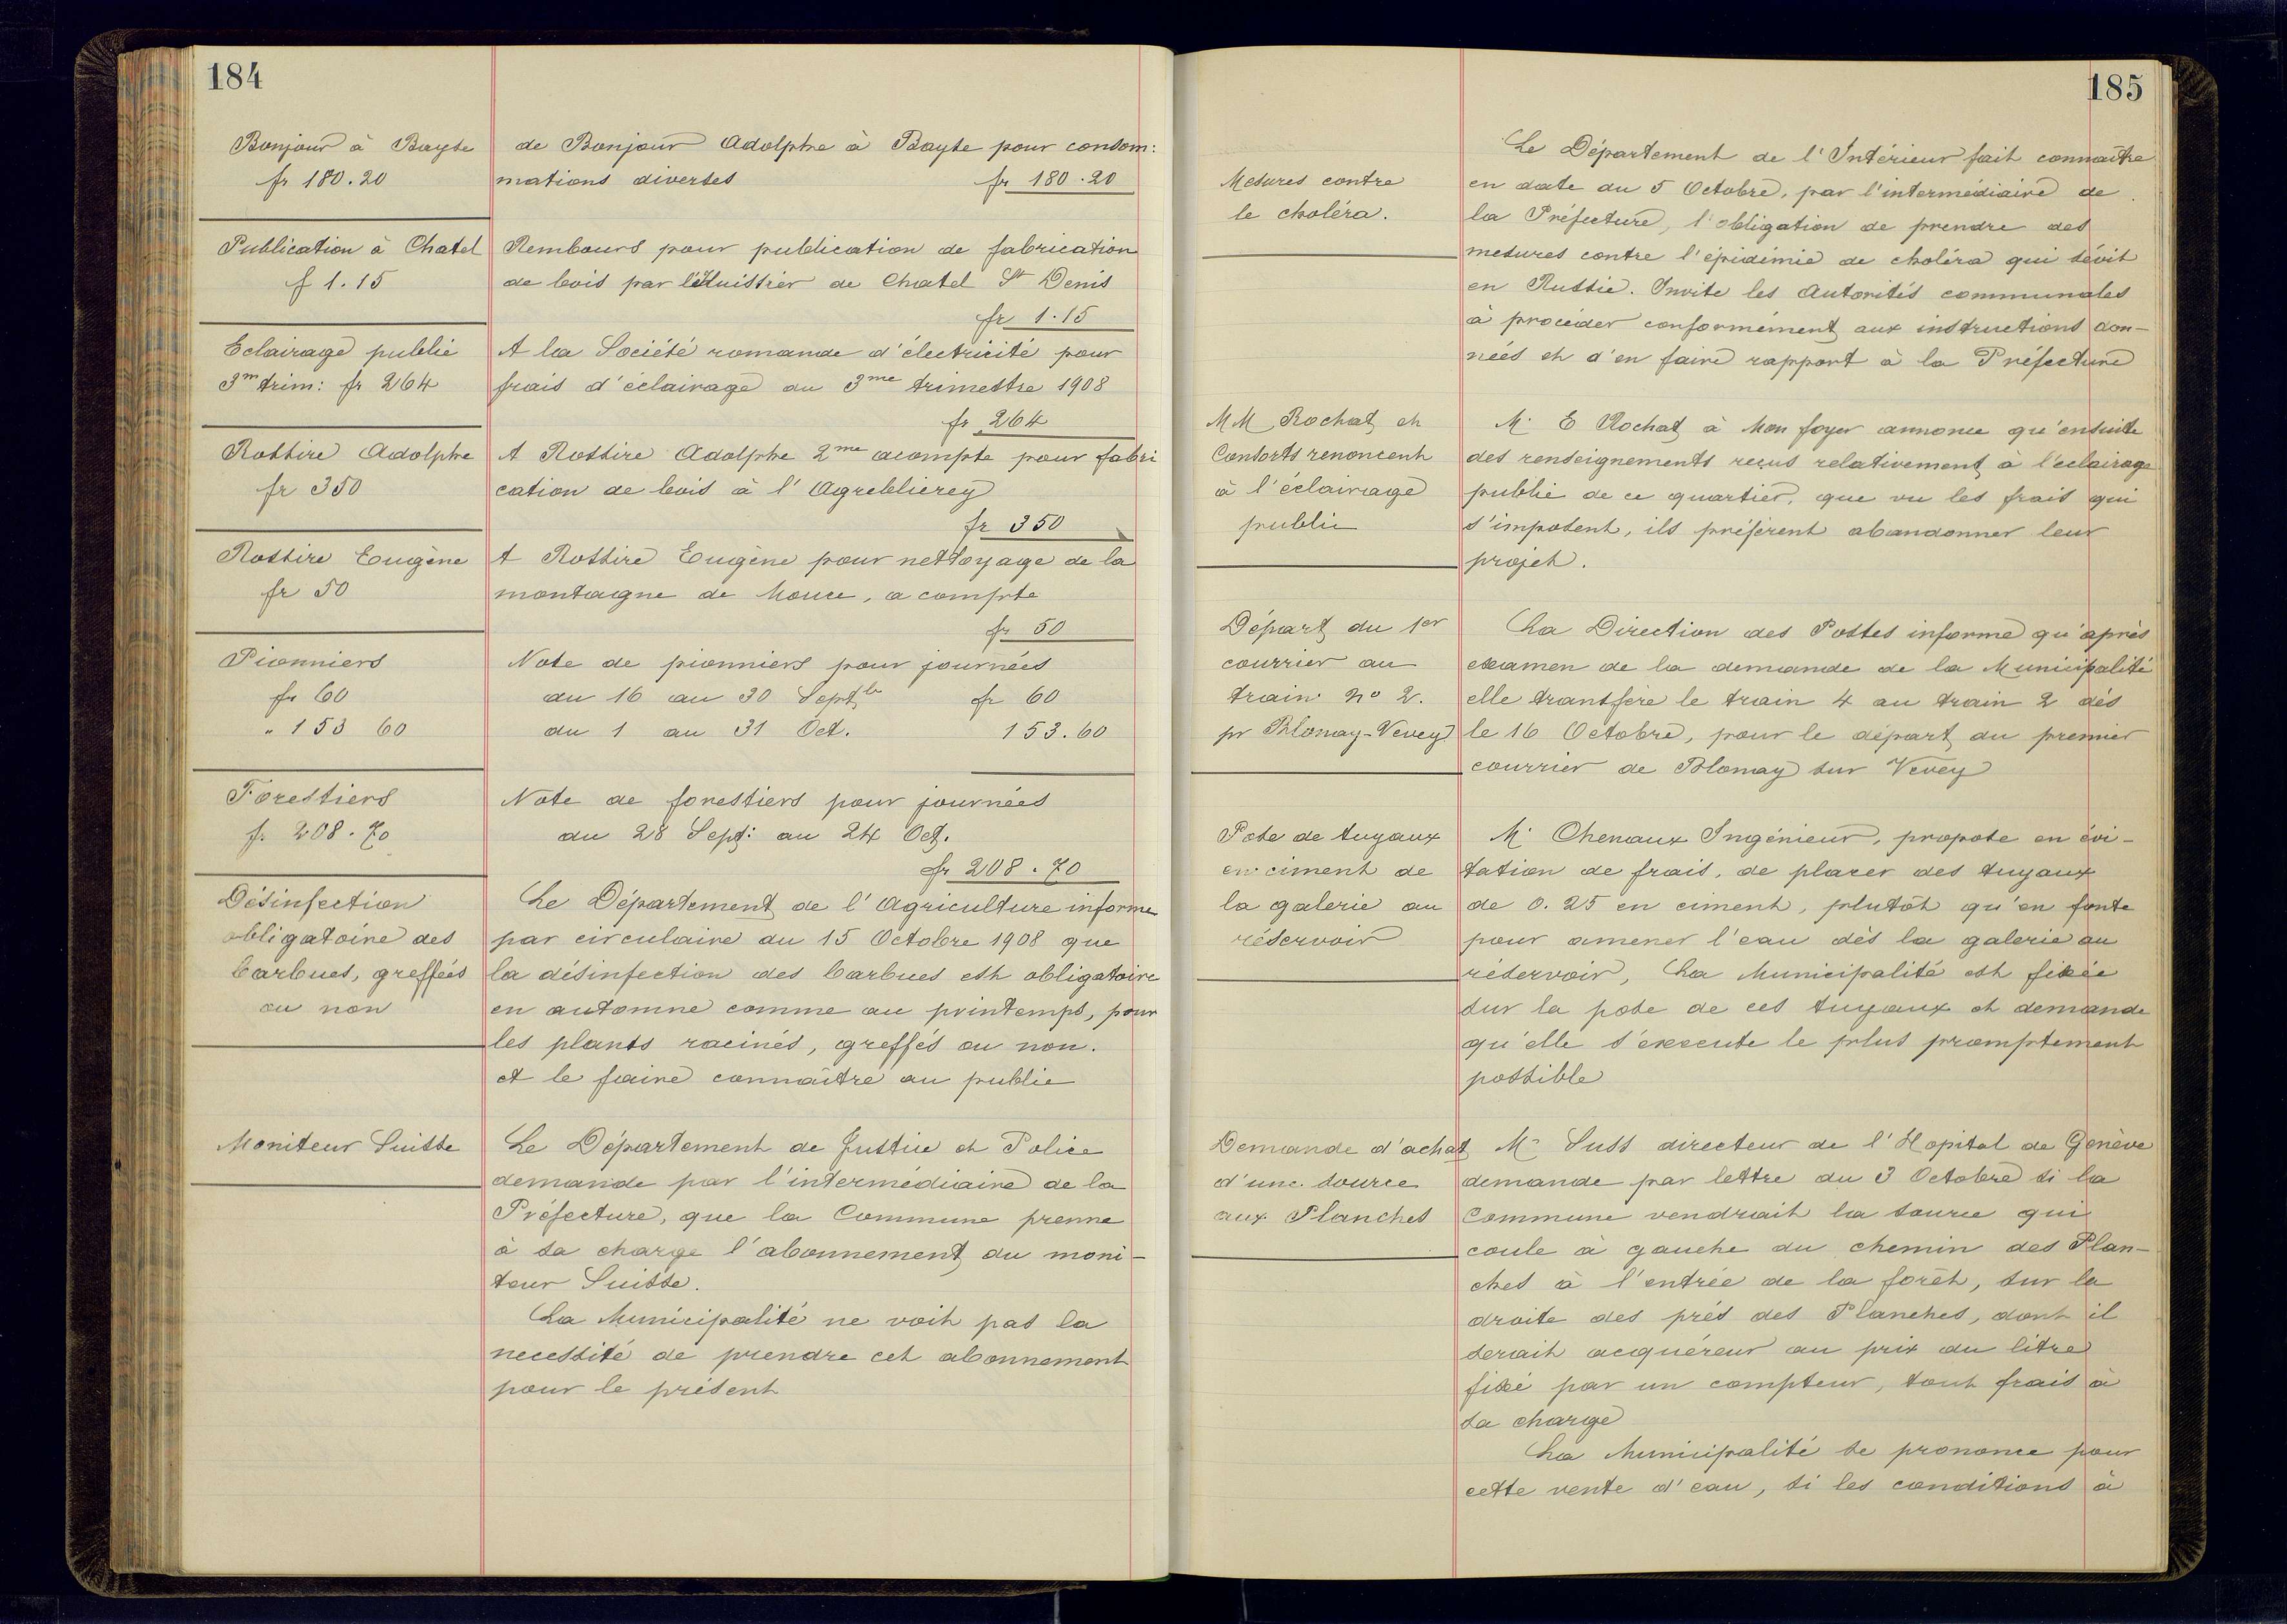 184
Bonjour à Bayse
fr 180.20
de Bonjour Adolphe à Bayse pour consom:
mations diverses fr 180.20
Publication à Chatel
f 1.15
Rembours pour publication de fabrication
de bois par l'Huissier de Chatel St Denis
fr 1.15
Eclairage public
3m trim: fr 264
A la Société romande d'électricité pour
frais d'éclairage du 3me trimestre 1908
fr 264
Rossire Adolphe
fr 350
A Rossire Adolphe 2me acompte pour fabri
cation de bois à l'Agreblierey
fr 350
Rossire Eugène
fr 50
A Rossire Eugène pour nettoyage de la
montagne de Mouce, a compte
fr 50
Pionniers
fr 60
" 153 60
Note de pionniers pour journées
du 16 au 30 Septbr fr 60
du 1 au 31 Oct. 153.60
Forestiers
f. 208.70
Note de forestiers pour journées
du 28 Sept: au 24 Oct.
fr 208.70
Désinfection
obligatoire des
barbues, greffées
ou non
Le Département de l'Agriculture informe
par circulaire du 15 Octobre 1908 que
la désinfection des barbues est obligatoire
en automne comme au printemps, pour
les plants racinés, greffés ou non.
et le faire connaître au public
Moniteur Suisse
Le Département de Justice et Police
demande par l'intermédiaire de la
Préfecture, que la Commune prenne
à sa charge l'abonnement du moni-
teur Suisse.
La Municipalité ne voit pas la
necessité de prendre cet abonnement
pour le présent
185
Mesures contre
le choléra.
Le Département de l'Intérieur fait connaître
en date du 5 Octobre, par l'intermédiaire de
la Préfecture, l'obligation de prendre des
mesures contre l'épidémie de choléra qui sévit
en Russie. Invite les Autorités communales
à procéder conformément aux instructions don-
nées et d'en faire rapport à la Préfecture
MM Rochat et
Consorts renoncent
à l'éclairage
public
M. E Rochat à Mon foyer annonce qu'ensuite
des renseignements reçus relativement à l'eclairage
public de ce quartier, que vu les frais qui
s'imposent, ils préfèrent abandonner leur
projet.
Départ du 1er
courrier au
train no 2.
pr Blonay-Vevey
La Direction des Postes informe qu'après
examen de la demande de la Municipalité
elle transfère le train 4 au train 2 dès
le 16 Octobre, pour le départ du premier
courrier de Blonay sur Vevey
Pose de tuyaux
en ciment de
la galerie au
réservoir
M. Chenaux Ingénieur, propose en évi-
tation de frais, de placer des tuyaux
de 0.25 en ciment, plutôt qu'en fonte
pour amener l'eau dès la galerie au
réservoir, La Municipalité est fixée
sur la pose de ces tuyaux et demande
qu'elle s'execute le plus promptement
possible
Demande d'achat
d'une source
aux Planches
Mr Suss directeur de l'Hopital de Genève
demande par lettre du 3 Octobre si la
Commune vendrait la source qui
coule à gauche du chemin des Plan-
ches à l'entrée de la forêt, sur la
droite des prés des Planches, dont il
serait acquéreur au prix du litre
fixé par un compteur, tout frais à
sa charge
La Municipalité se prononce pour
cette vente d'eau, si les conditions à